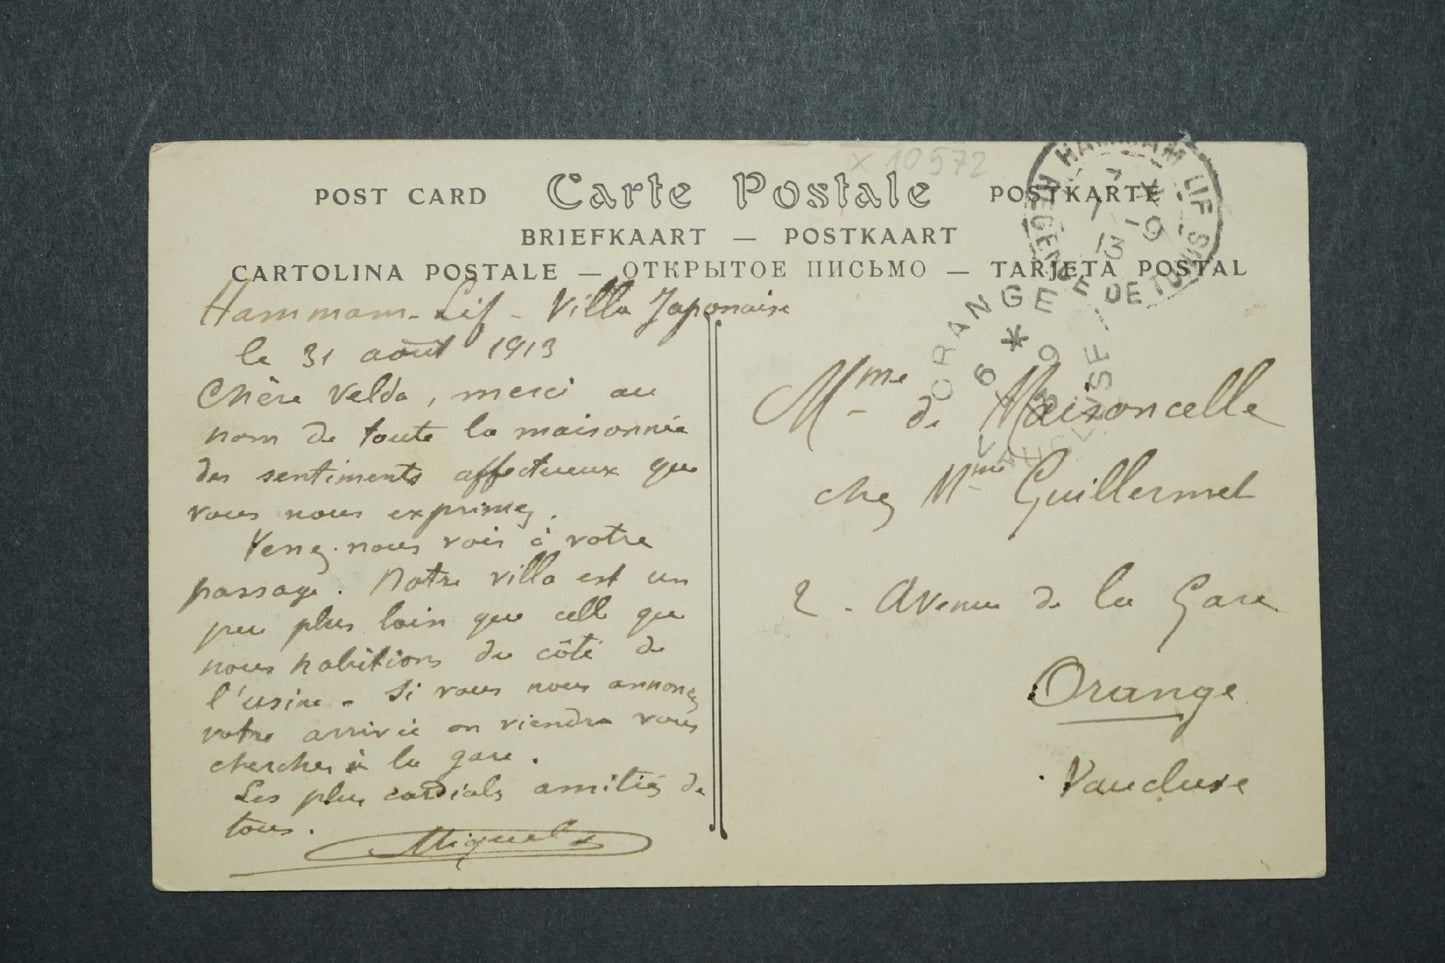 x 10572
POST CARD Carte Postale POSTKARTE
BRIEFKAART — POSTKAART
CARTOLINA POSTALE — ОТКРЫТОЕ ПИСЬМО — TARJETA POSTAL
HAMMAM LIF
REGENCE DE TUNIS
7 -9
13
ORANGE
6 9
13
VAUCLUSE
Hammam-Lif - Villa Japonaise
le 31 août 1913
Chère Velda, merci au
nom de toute la maisonnée
des sentiments affectueux que
vous nous exprimez.
Venez-nous voir à votre
passage. Notre villa est un
peu plus loin que celle que
nous habitions du côté de
l'usine. Si vous nous annoncez
votre arrivée on viendra vous
chercher à la gare.
Les plus cordiales amitiés de
tous.
Miquel
Mme de Maisoncelle
chez Mme Guillermet
2 - Avenue de la Gare
Orange
Vaucluse